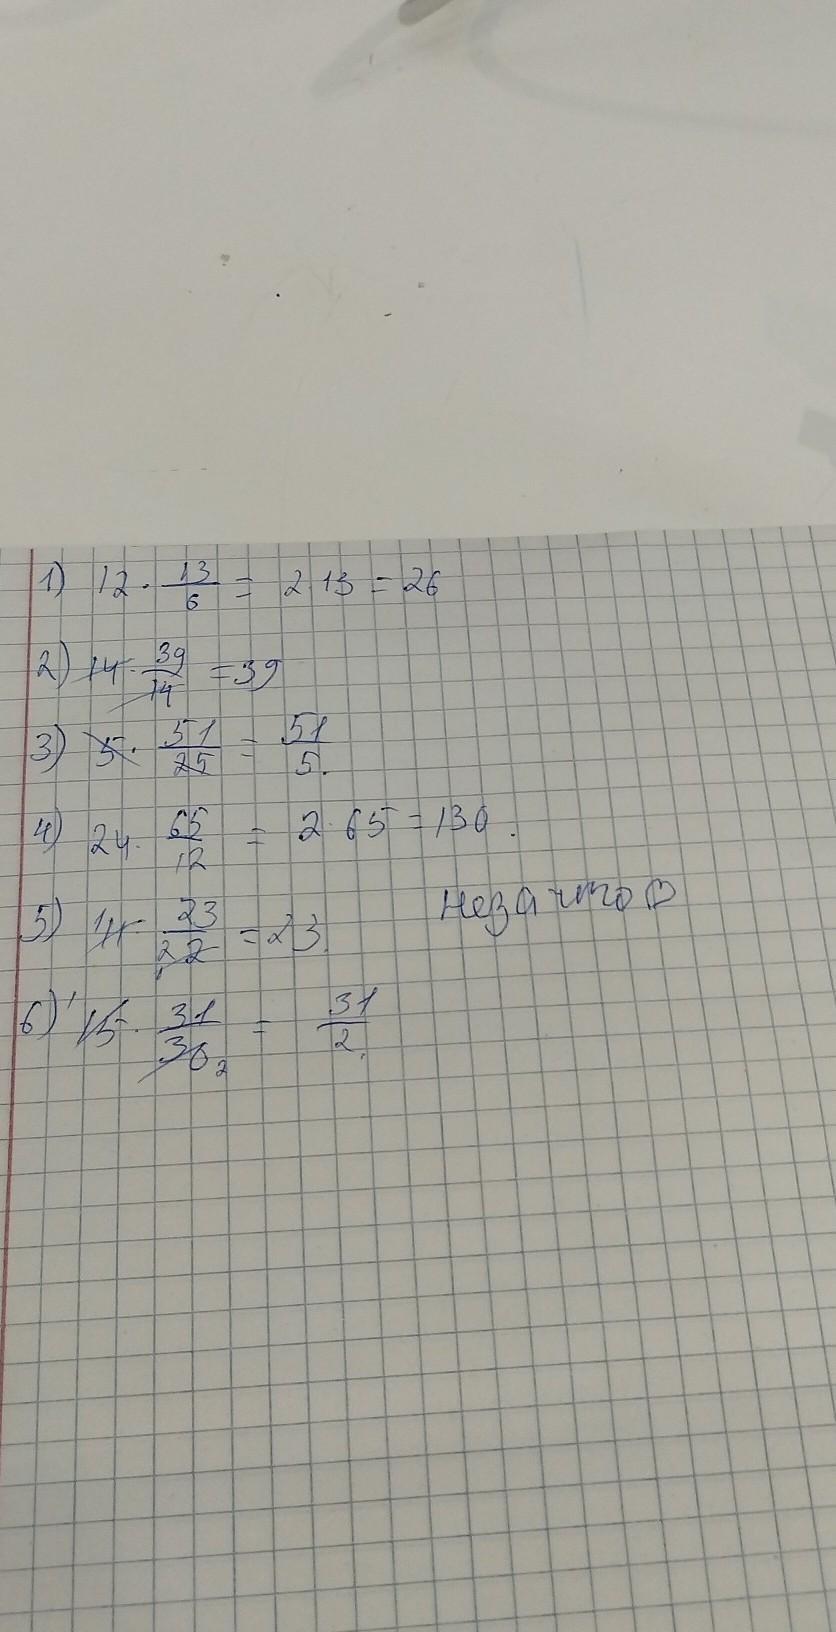 1) 12 · 13/6 = 2 · 13 = 26
2) 14 · 39/14 = 39
3) 5 · 51/25 = 51/5.
4) 24 · 65/12 = 2 · 65 = 130.
5) 11 · 23/22 = 23.
незачтов
6) 15 · 31/30 2 = 31/2.